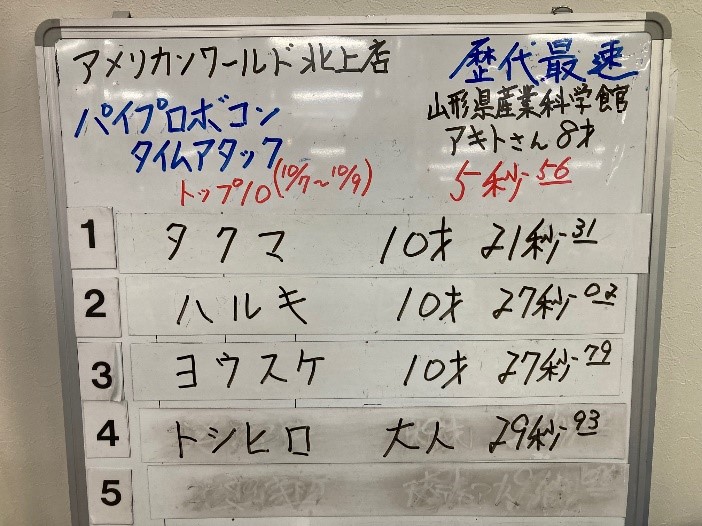 アメリカンワールド北上店
歴代最速
山形県産業科学館
アキトさん 8才
5秒56
パイプロボコン
タイムアタック
トップ10(10/7~10/9)
1 タクマ 10才 21秒31
2 ハルキ 10才 27秒02
3 ヨウスケ 10才 27秒79
4 トシヒロ 大人 29秒93
5